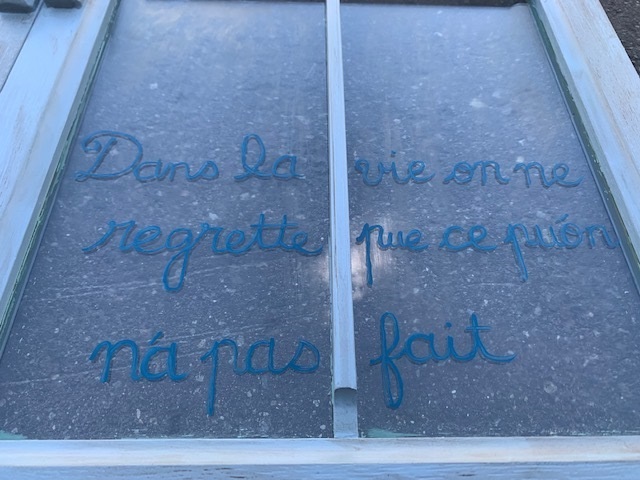 Dans la vie on ne
regrette que ce qu'on
n'a pas fait